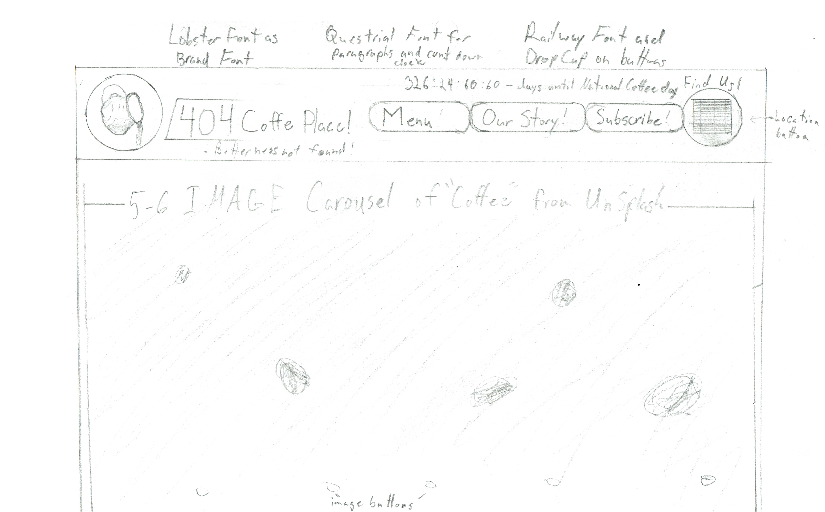 Lobster Font as
Brand Font
Questrial Font for
Paragraphs and count down
clock
Railway Font and
Drop Cap on buttons
326:24:60:60 - days until National Coffee day
Find Us!
404 Coffe Place!
- Bitterness not found!
Menu
Our Story!
Subscribe!
Location
button
5-6 IMAGE Carousel of "Coffee" from UnSplash
image buttons